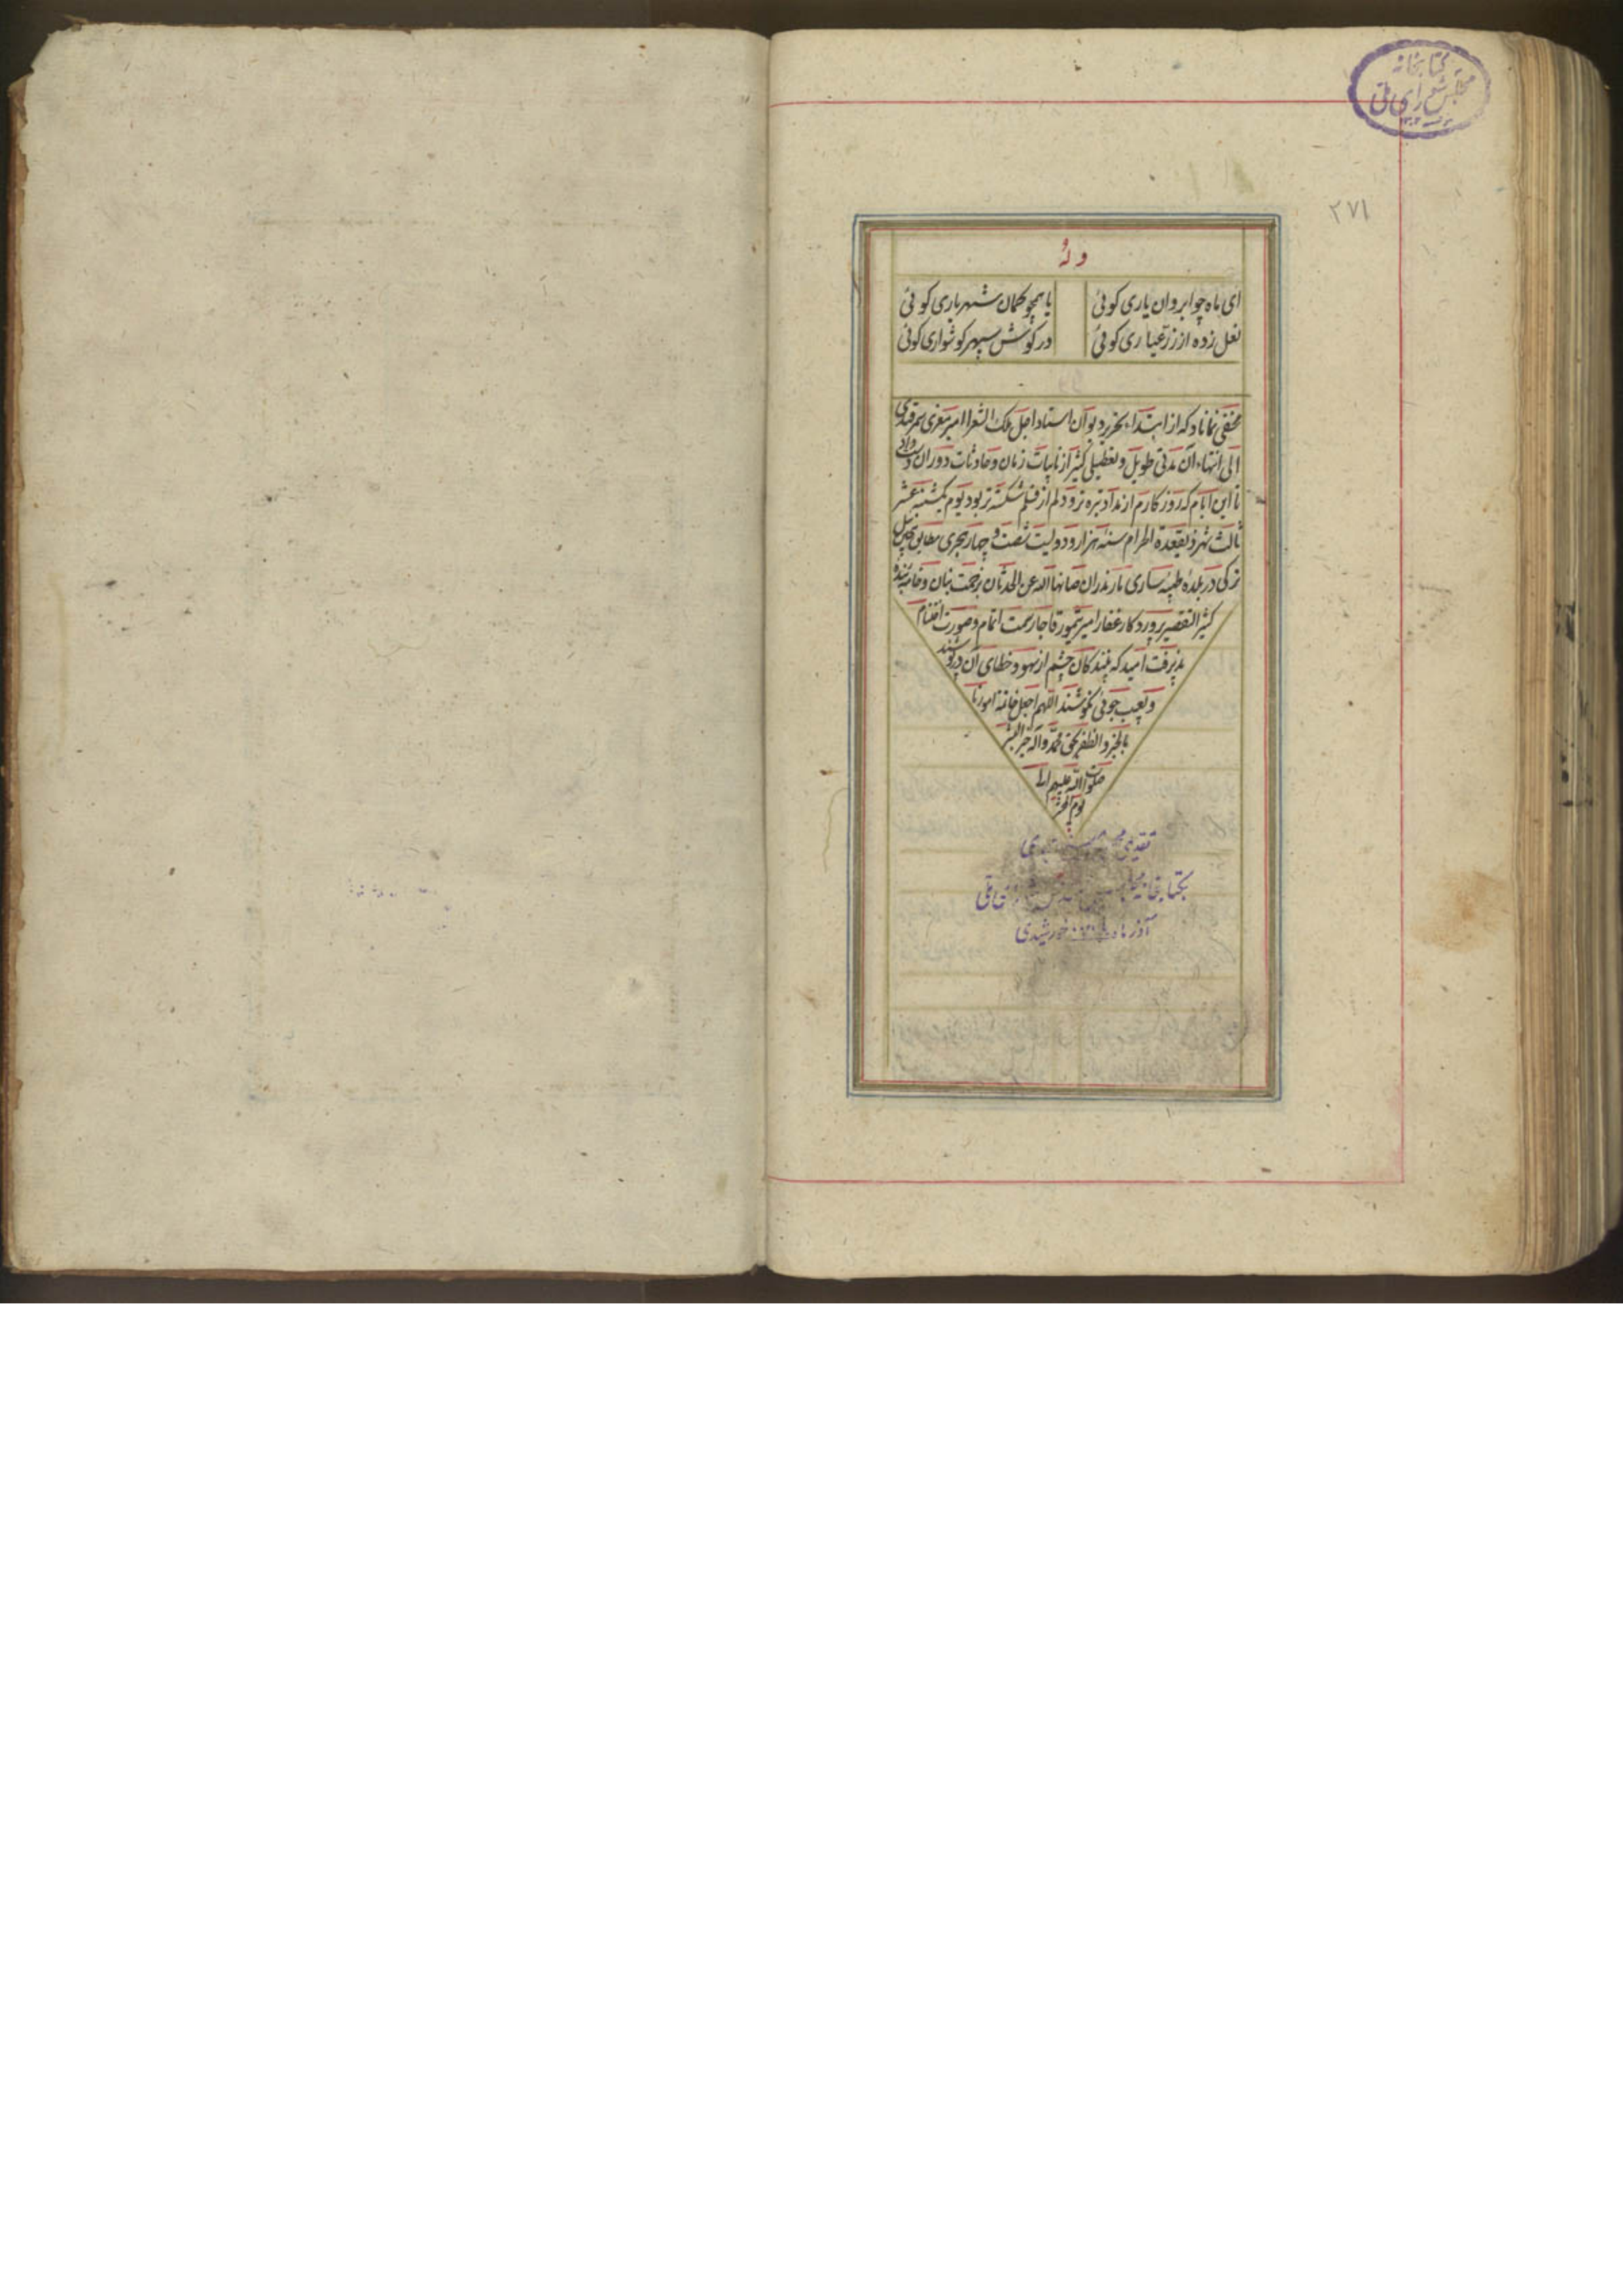 کتابخانه
مجلس شورای ملی
۲۷۱
وله
ای ماه چو ابروان یاری کوئی
یا همچو کمان شهریاری کوئی
نعل زده از زر عیاری کوئی
در کوش سپهر کوشواری کوئی
مخفی نماناد که از ابتداء تحریر دیوان استاد اجل ملک الشعرا امیر معزی سمرقندی
الی انتهاء آن مدتی طویل و تعطیلی کثیر از نایبات زمان و حادثات دوران
تا این ایام که روزکارم از مداد تیره تر و دلم از قلم شکسته تر بود یوم یکشنبه عشر
ثالث شهر ذیقعدة الحرام سنه هزار و دویست شصت و چهار هجری مطابق
ترکی در بلده طیبه ساری مازندران صانها الله عن الحدثان بزحمت بنان و خامه بنده
کثیر التقصیر پروردکار غفار امیر تیمور قاجار سمت اتمام و صورت اختتام
پذیرفت امید که بینندکان چشم از سهو و خطای آن درپوشند
و بعیب جوئی نکوشند اللهم اجعل خاتمة امورنا
بالخیر و الظفر بحق محمد و آله خیر البشر
صلوات الله علیهم الی
یوم المحشر
تقدیمی
بکتابخانه ملی
آذر ماه خورشیدی